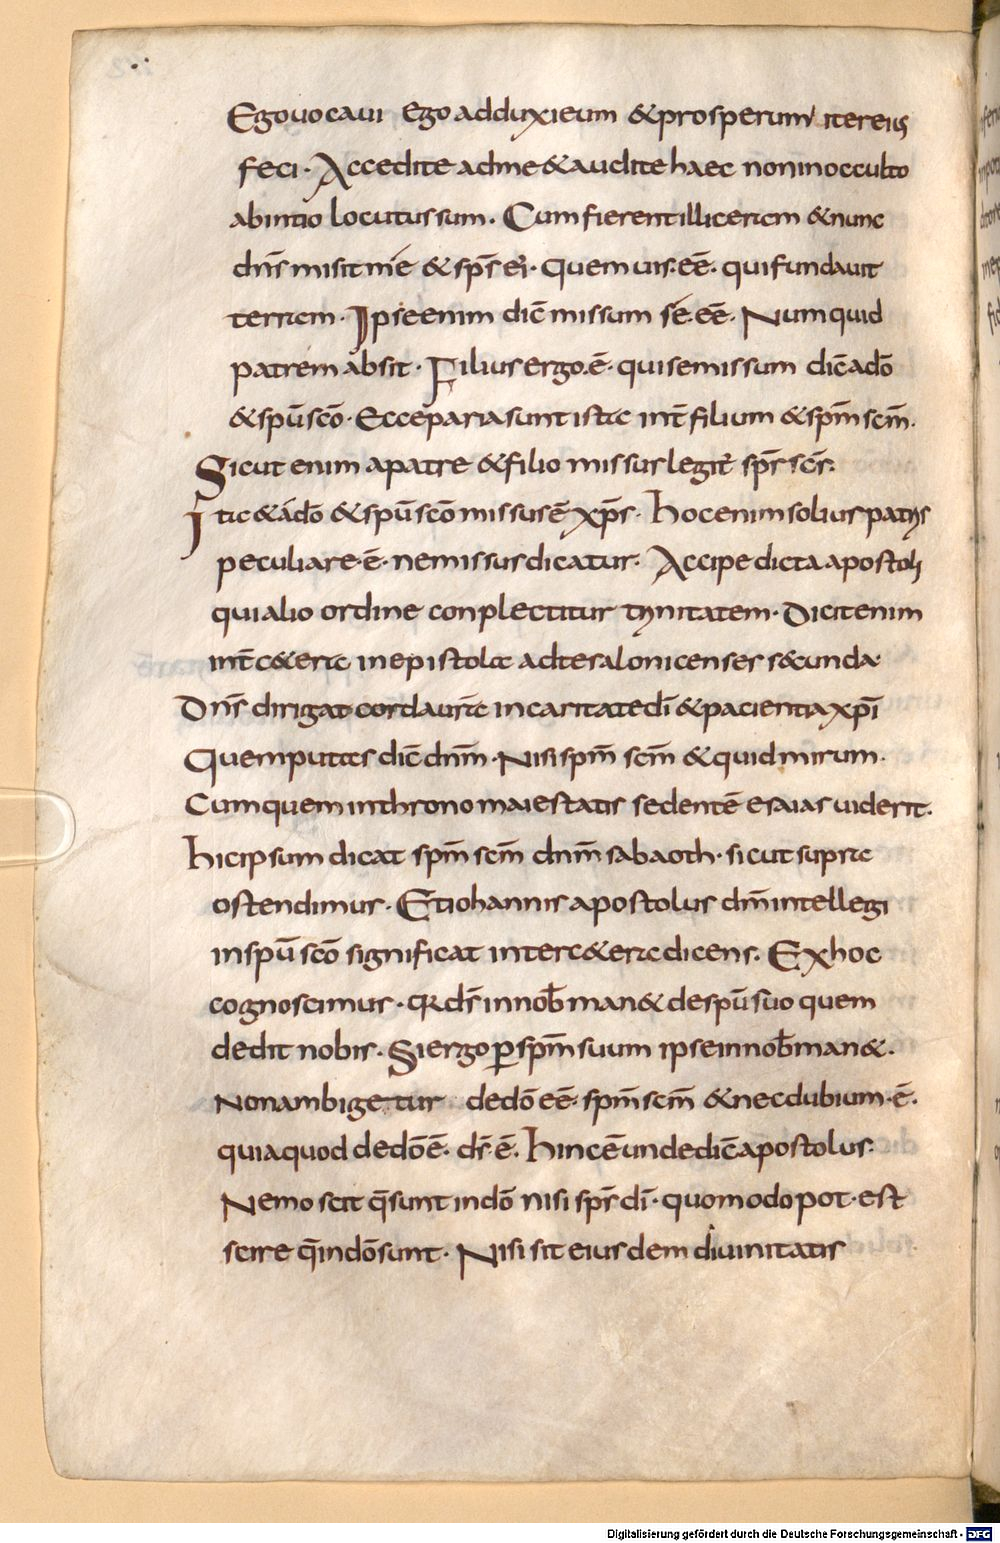 Ego uocaui ego adduxi eum & prosperum iter eius
feci. Accedite ad me & audite haec non in occulto
ab initio locutus sum. Cum fierent illic eram & nunc
dn̄s misit me & sp̄s ei. Quem uis. eē. qui fundauit
terram. Ipse enim dic̄ missum sé. eē. Numquid
patrem absit. Filius ergo. ē. qui se missum dic̄ a dō
& spū scō. Ecce paria sunt ista int̄ filium & spm̄ scm̄.
Sicut enim a patre & filio missus legit̄ sp̄s sc̄s.
Ita & a dō & spū scō missus ē xp̄s. Hoc enim solius patris
peculiare. ē. ne missus dicatur. Accipe dicta apostoli
qui alio ordine conplectitur trinitatem. Dicit enim
int̄ c&era in epistola ad tesalonicenses s&cunda.
Dn̄s dirigat corda ur̄a in caritate dī & pacientia xpī
Quem putas dic̄ dnm̄. Nisi spm̄ scm̄ & quid mirum.
Cum quem in throno maiestatis sedentē esaias uiderit.
Hic ipsum dicat spm̄ scm̄ dnm̄ sabaoth. sicut supra
ostendimus. Et iohannis apostolus dm̄ intellegi
in spū scō significat inter c&era dicens. Ex hoc
cognoscimus. qr ds̄ in nob̄ man& de spū suo quem
dedit nobis. Si ergo p̱ spm̄ suum ipse in nob̄ man&.
Non ambigetur de dō eē. spm̄ scm̄ & nec dubium. ē.
quia quod de dō ē. ds̄. ē. Hinc ē unde dic̄ apostolus.
Nemo scit q̄ sunt in dō nisi sp̄s dī. quomodo pot. est
scire q̄ in dō sunt. Nisi sit eiusdem diuinitatis
Digitalisierung gefördert durch die Deutsche Forschungsgemeinschaft - DFG